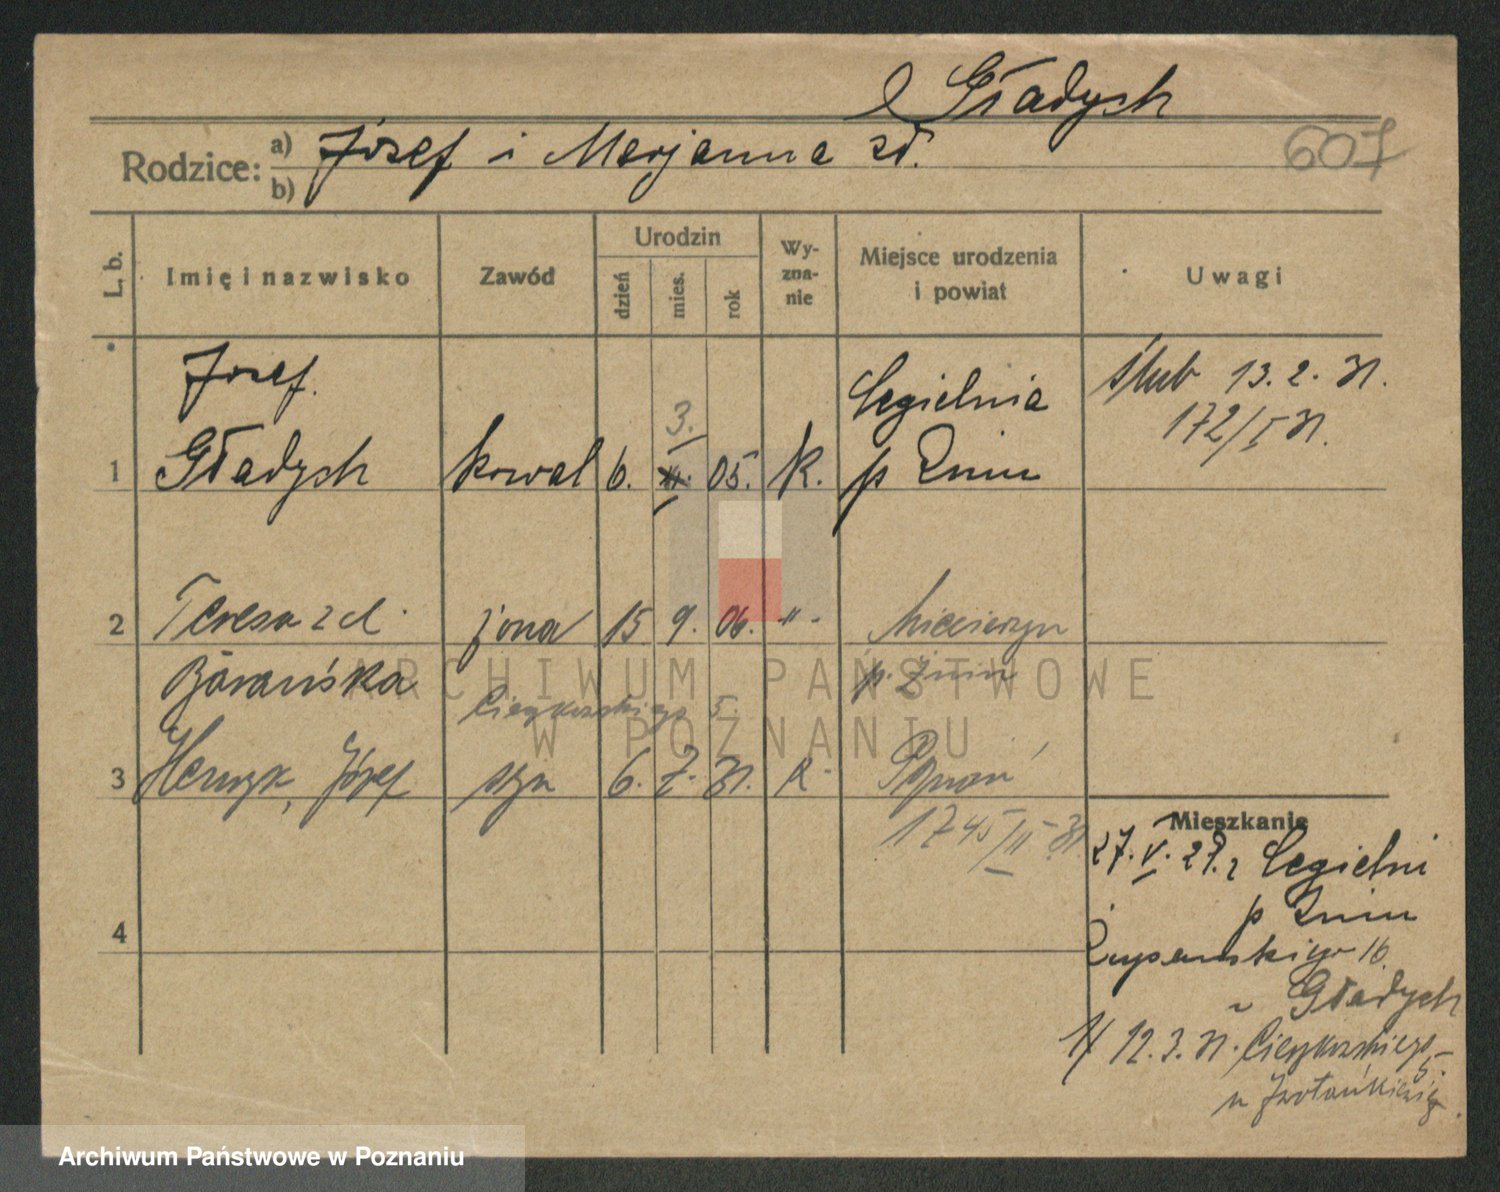 Gładych
Rodzice: a) Józef i Marjanna zd.
b)
607
L. b.
Imię i nazwisko
Zawód
Urodzin
dzień
mies.
rok
Wy-
zna-
nie
Miejsce urodzenia
i powiat
Uwagi
Józef.
Cegielnia
ślub 13.2.31.
3.
172/I 31.
1 Gładych kowal 6. 05. k. p Żnin
2 Teresa zd. żona 15 9. 06. -"-
p. Żnin
Barańska
Cieszkowskiego 5.
3 Henryk, Józef syn 6. 7. 31. k. Poznań
1745/II 31
Mieszkanie
27. V. 29. z Cegielni
p Żnin
4
16
u Gładych
1/ 12.3.31. Cieszkowskiego
5.
u
ARCHIWUM PAŃSTWOWE
W POZNANIU
Archiwum Państwowe w Poznaniu